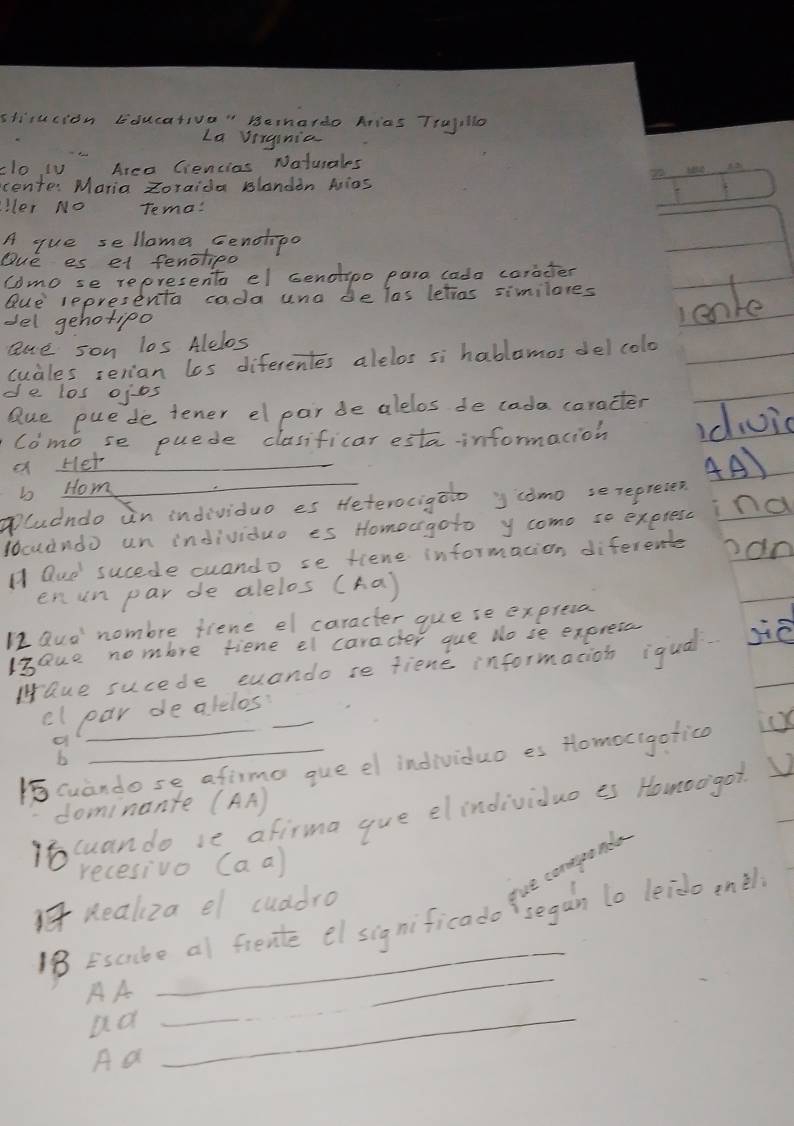 Educativa" Bernardo Arias Trujillo
La Virginia
clo IV Area Ciencias Naturales
cente: Maria Zoraida Blandón Arias
ller No Tema:
A que se llama Genotipo
Que es el fenotipo
Como se representa el Genotipo para cada caracter
Que representa cada una de las letras similares
del genotipo
Que son los Alelos
cuáles serian los diferentes alelos si hablamos del colo
de los ojos
Que puede tener el par de alelos de cada caracter
Cómo se puede clasificar esta información
a Het
b Hom
Cuándo un individuo es Heterocigoto y cómo se represen
10 cuándo un individuo es Homocigoto y como se expresa
11 Que sucede cuando se tiene informacion diferente
en un par de alelos (Aa)
12 Que nombre tiene el caracter que se expresa
13 Que nombre tiene el caracter que No se expresa
14 Que sucede cuando se tiene informacion igual
el par de alelos
a
b
15 Cuándo se afirma que el individuo es Homocigotico
dominante (AA)
16 cuando se afirma que el individuo es Homocigot
recesivo (aa)
17 Realiza el cuadro
18 Escribe al frente el significado que corresponda según lo leido en el
AA
aa
Aa
iente
idivid
AA)
ina